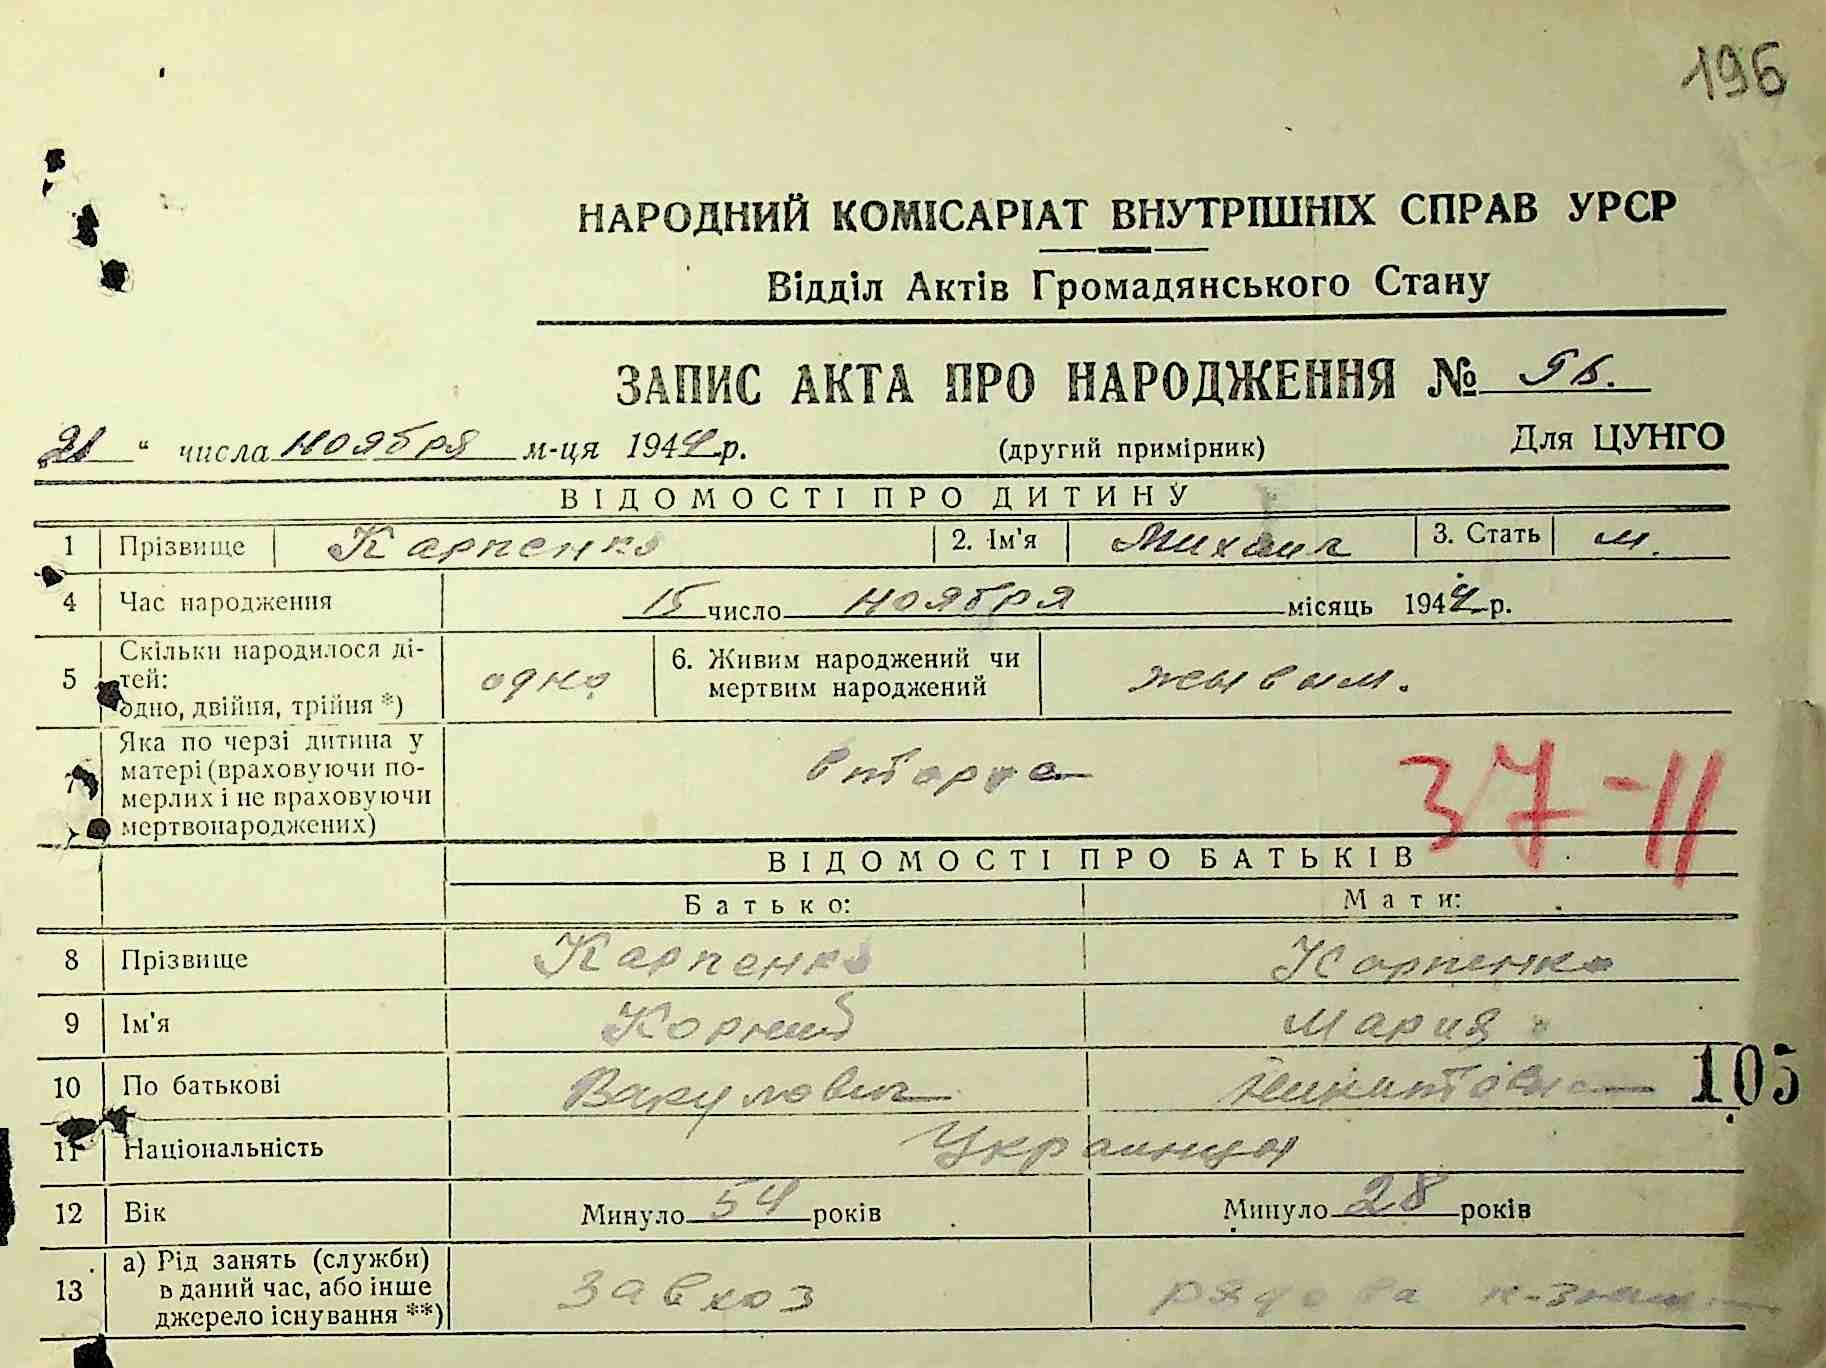 196
НАРОДНИЙ КОМІСАРІАТ ВНУТРІШНІХ СПРАВ УРСР
Відділ Актів Громадянського Стану
ЗАПИС АКТА ПРО НАРОДЖЕННЯ №
21 " числа ноября м-ця 1944 р. (другий примірник) Для ЦУНГО
ВІДОМОСТІ ПРО ДИТИНУ
1 Прізвище Карпенко 2. Ім'я Михаил 3. Стать м.
4 Час народження 15 число ноября місяць 1944 р.
5 Скільки народилося дітей: одно, двійня, трійня *) одно 6. Живим народжений чи мертвим народжений жывым.
7 Яка по черзі дитина у матері (враховуючи померлих і не враховуючи мертвонароджених) вторая
37-11
ВІДОМОСТІ ПРО БАТЬКІВ
Батько: Мати:
8 Прізвище Карпенко Карпенко
9 Ім'я Корний Мария
10 По батькові Вакулович Никитовна 105
11 Національність Украинцы
12 Вік Минуло 54 років Минуло 28 років
13 а) Рід занять (служби) в даний час, або інше джерело існування **) завхоз рядова